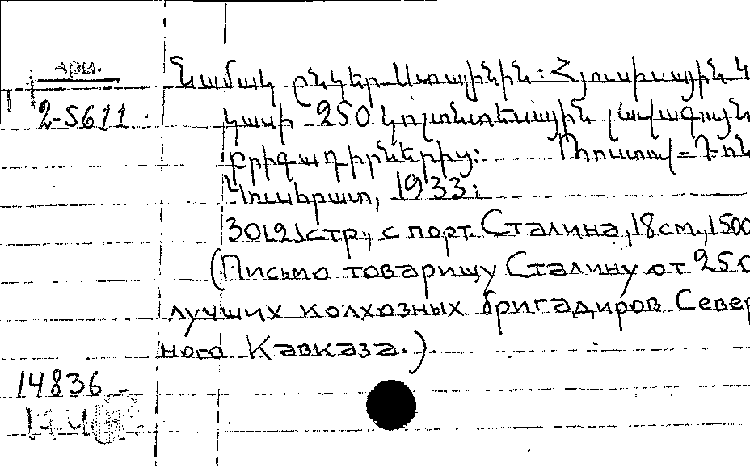 арм.
2-5611.
Նամակ ընկեր Ստալինին: Հյուսիսային Կ
կասի 250 կոլտնտեսային լավագույն
բրիգադիրներից: Ռոստով-Դոն
Կուսհրատ, 1933:
30[2]стр., с порт. Сталина, 18 см., 1500
(Письмо товарищу Сталину от 250
лучших колхозных бригадиров Север
ного Кавказа.).
14836 -